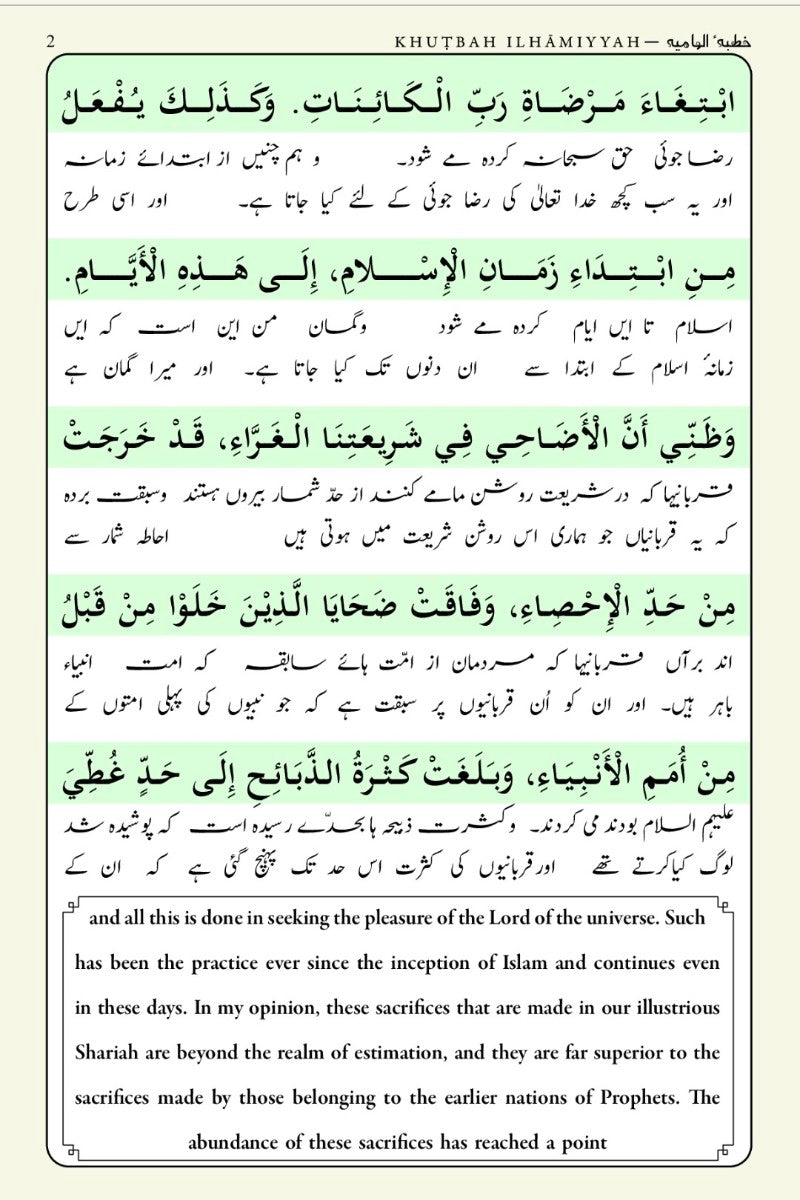 2
KHUṬBAH ILHĀMIYYAH — خطبہ الہامیہ
ابْتِغَاءَ مَرْضَاةِ رَبِّ الْكَائِنَاتِ. وَكَذَلِكَ يُفْعَلُ
رضا جوئی حق سبحانہ کردہ مے شود۔ و ہم چنیں از ابتدائے زمانہ
اور یہ سب کچھ خدا تعالیٰ کی رضا جوئی کے لئے کیا جاتا ہے۔ اور اسی طرح
مِنِ ابْتِدَاءِ زَمَانِ الْإِسْلامِ، إِلَى هَذِهِ الْأَيَّامِ.
اسلام تا ایں ایام کردہ مے شود وگمان من این است کہ ایں
زمانۂ اسلام کے ابتدا سے ان دنوں تک کیا جاتا ہے۔ اور میرا گمان ہے
وَظَنِّي أَنَّ الْأَضَاحِي فِي شَرِيعَتِنَا الْغَرَّاءِ، قَدْ خَرَجَتْ
قربانیہا کہ درشریعت روشن مامے کنند از حدّ شمار بیروں ہستند وسبقت بردہ
کہ یہ قربانیاں جو ہماری اس روشن شریعت میں ہوتی ہیں احاطہ شمار سے
مِنْ حَدِّ الْإِحْصَاءِ، وَفَاقَتْ ضَحَايَا الَّذِيْنَ خَلَوْا مِنْ قَبْلُ
اند برآں قربانیہا کہ مردمان از امّت ہائے سابقہ کہ امت انبیاء
باہر ہیں۔ اور ان کو اُن قربانیوں پر سبقت ہے کہ جو نبیوں کی پہلی امتوں کے
مِنْ أُمَمِ الْأَنْبِيَاءِ، وَبَلَغَتْ كَثْرَةُ الذَّبَائِحِ إِلَى حَدٍّ غُطِّيَ
علیہم السلام بودند می کردند۔ وکثرت ذبیحہ ہابحدّے رسیدہ است کہ پوشیدہ شد
لوگ کیاکرتے تھے اورقربانیوں کی کثرت اس حد تک پہنچ گئی ہے کہ ان کے
and all this is done in seeking the pleasure of the Lord of the universe. Such
has been the practice ever since the inception of Islam and continues even
in these days. In my opinion, these sacrifices that are made in our illustrious
Shariah are beyond the realm of estimation, and they are far superior to the
sacrifices made by those belonging to the earlier nations of Prophets. The
abundance of these sacrifices has reached a point